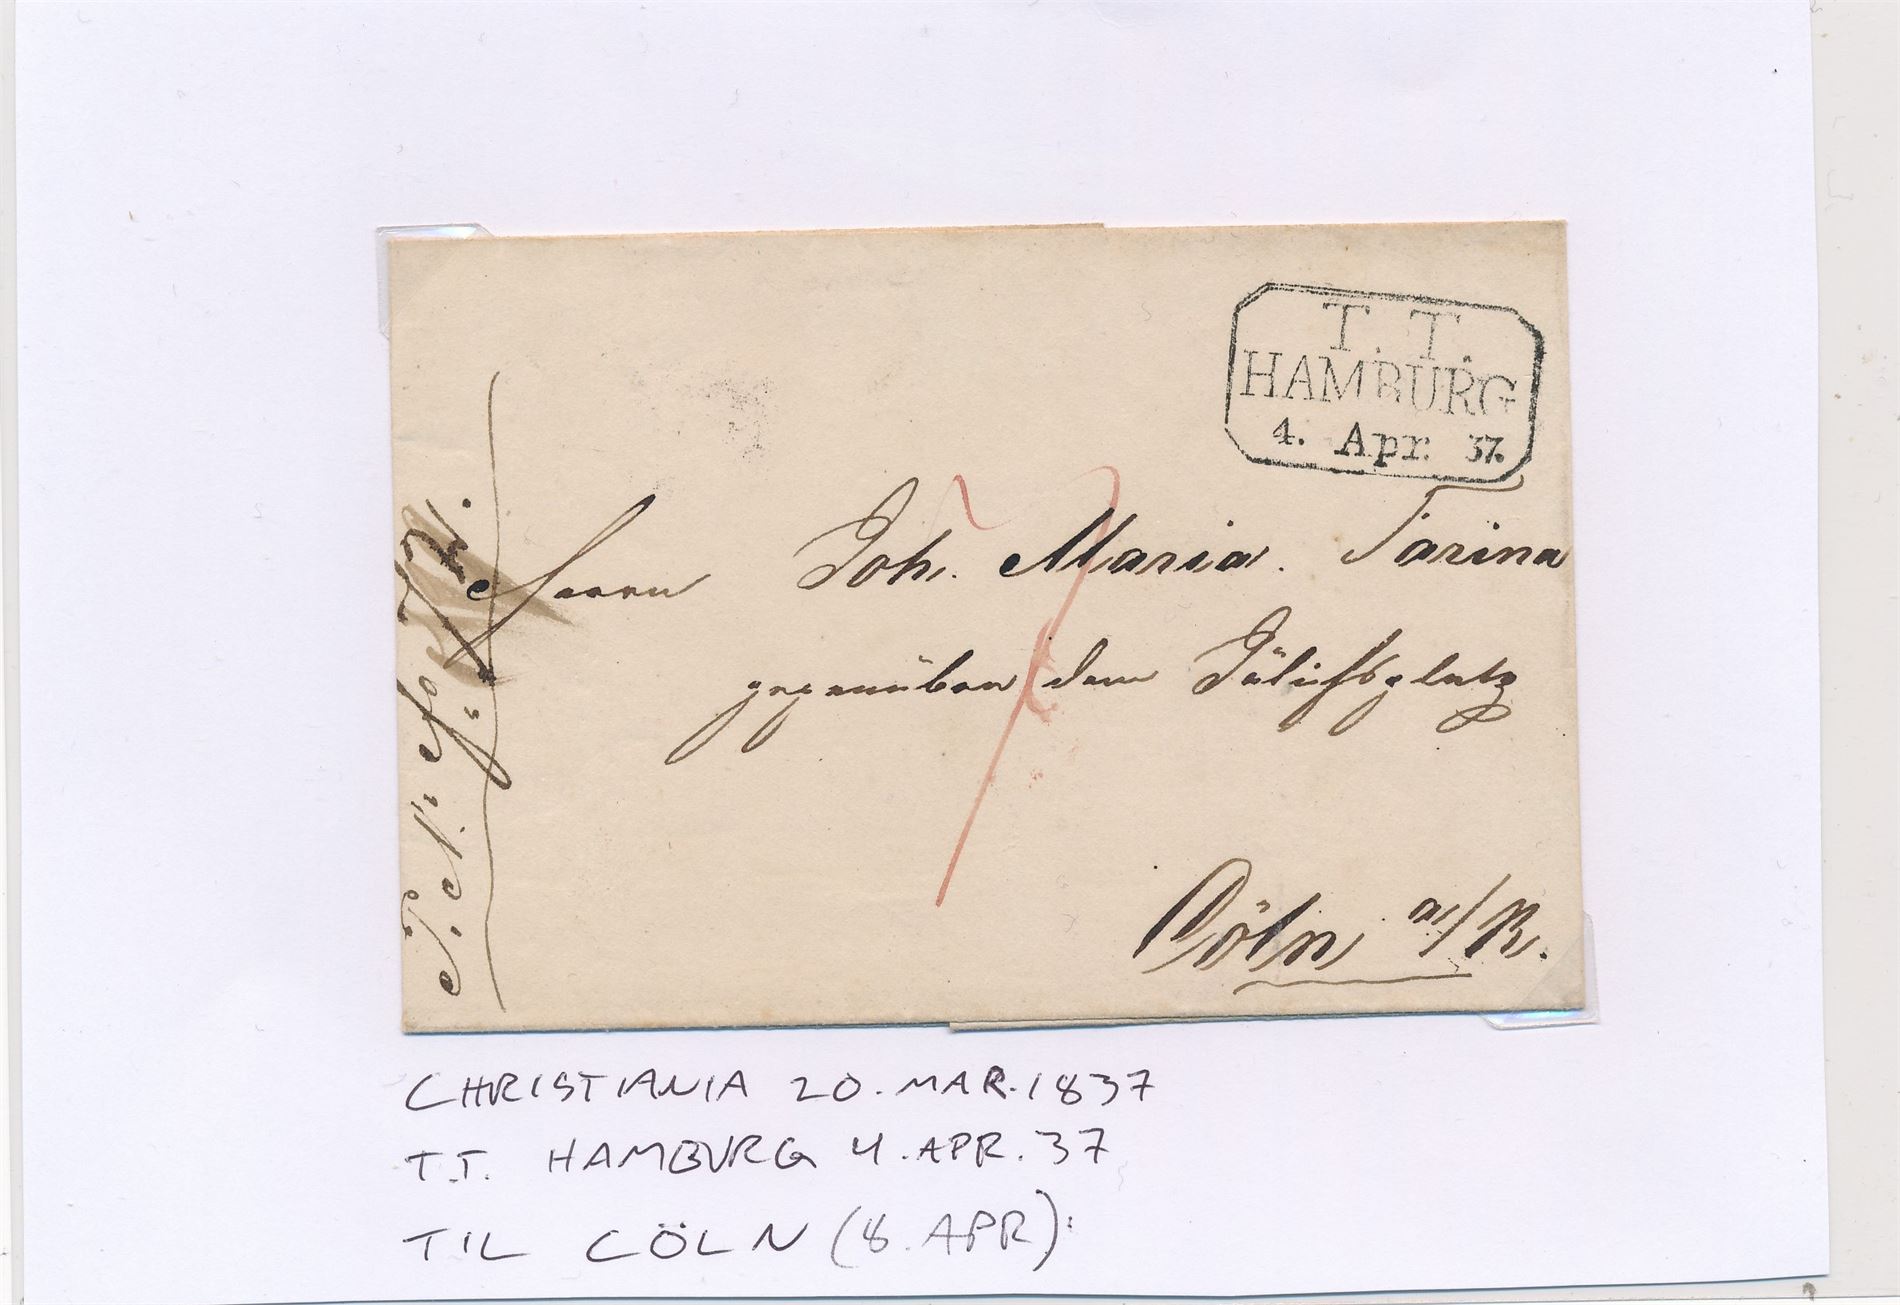 T. T.
HAMBURG
4. Apr. 37.
Herrn Joh. Maria Farina
gegenüber dem Jülichsplatz
Cöln a/R.
CHRISTIANIA 20. MAR. 1837
T.T. HAMBURG 4. APR. 37
TIL CÖLN (8. APR):